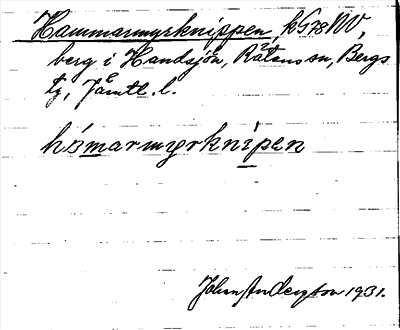 Hammarmyrknippen, k578NV,
berg i Handsjön, Rätans sn, Bergs
tg, Jämtl. l.
hòmarmyrknipen
John Anderzton 1931.